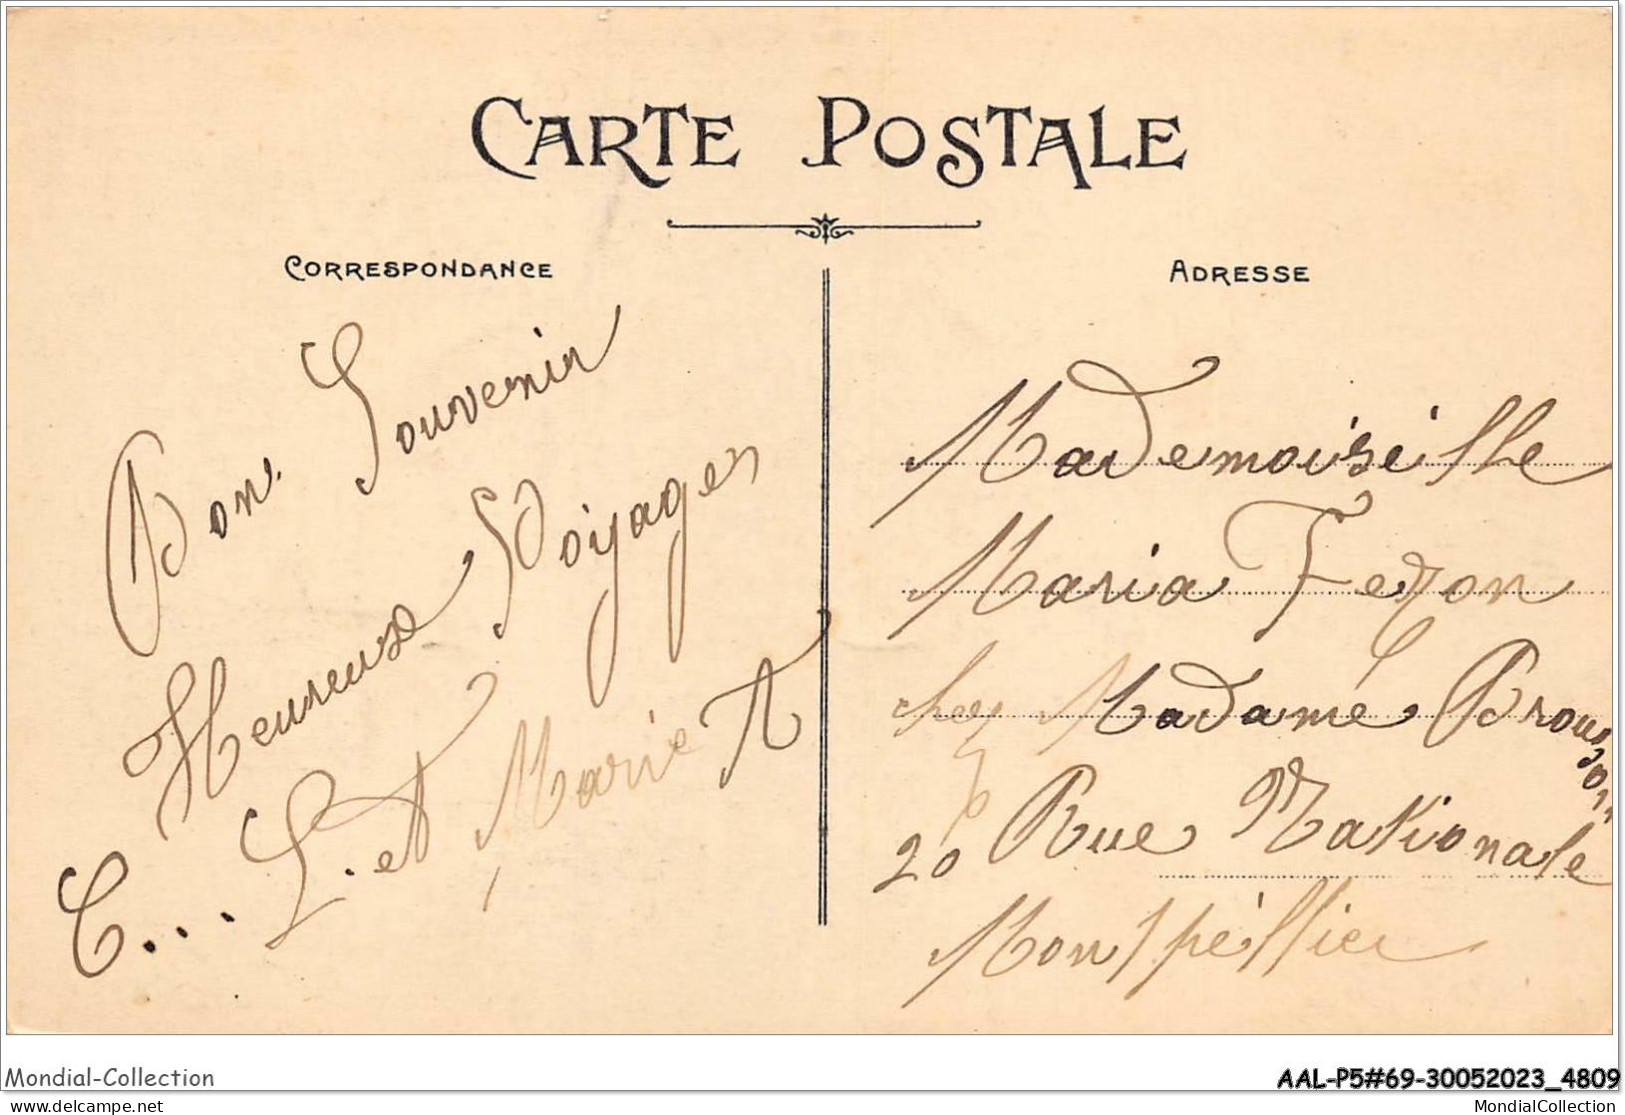 CARTE POSTALE
CORRESPONDANCE
Bon Souvenir
Heureuse Voyages
C... L. et A
Marie A
ADRESSE
Mademoiselle
Maria Fezon
chez Madame Brousson
20 Rue Nationale
Montpéllier
Mondial-Collection
delcampe.net
AAL-P5#69-30052023_4809
MondialCollection